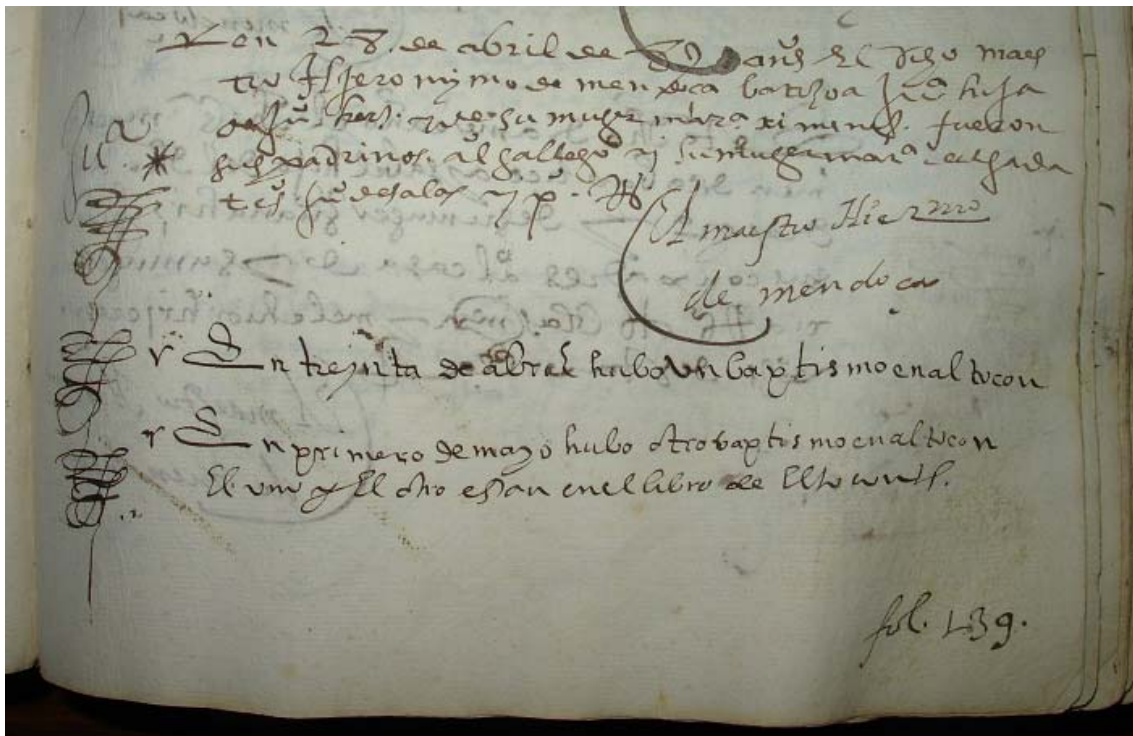 en 28 de abril de 89 años El dicho maes
tro Hieronymo de mendoça batizo a Juª hija
de Juº y de su muger marª ximenes. fueron
sus padrinos. al gallego y su muger marª
Juª
tesº Juº de salas y pº
El maestro Hiermo
de mendoça
En treynta de abrel hubo Vn baptismo en al tocon
En primero de mayo hubo otro baptismo en al tocon
El uno y El otro estan en el libro de El
fol. 139.